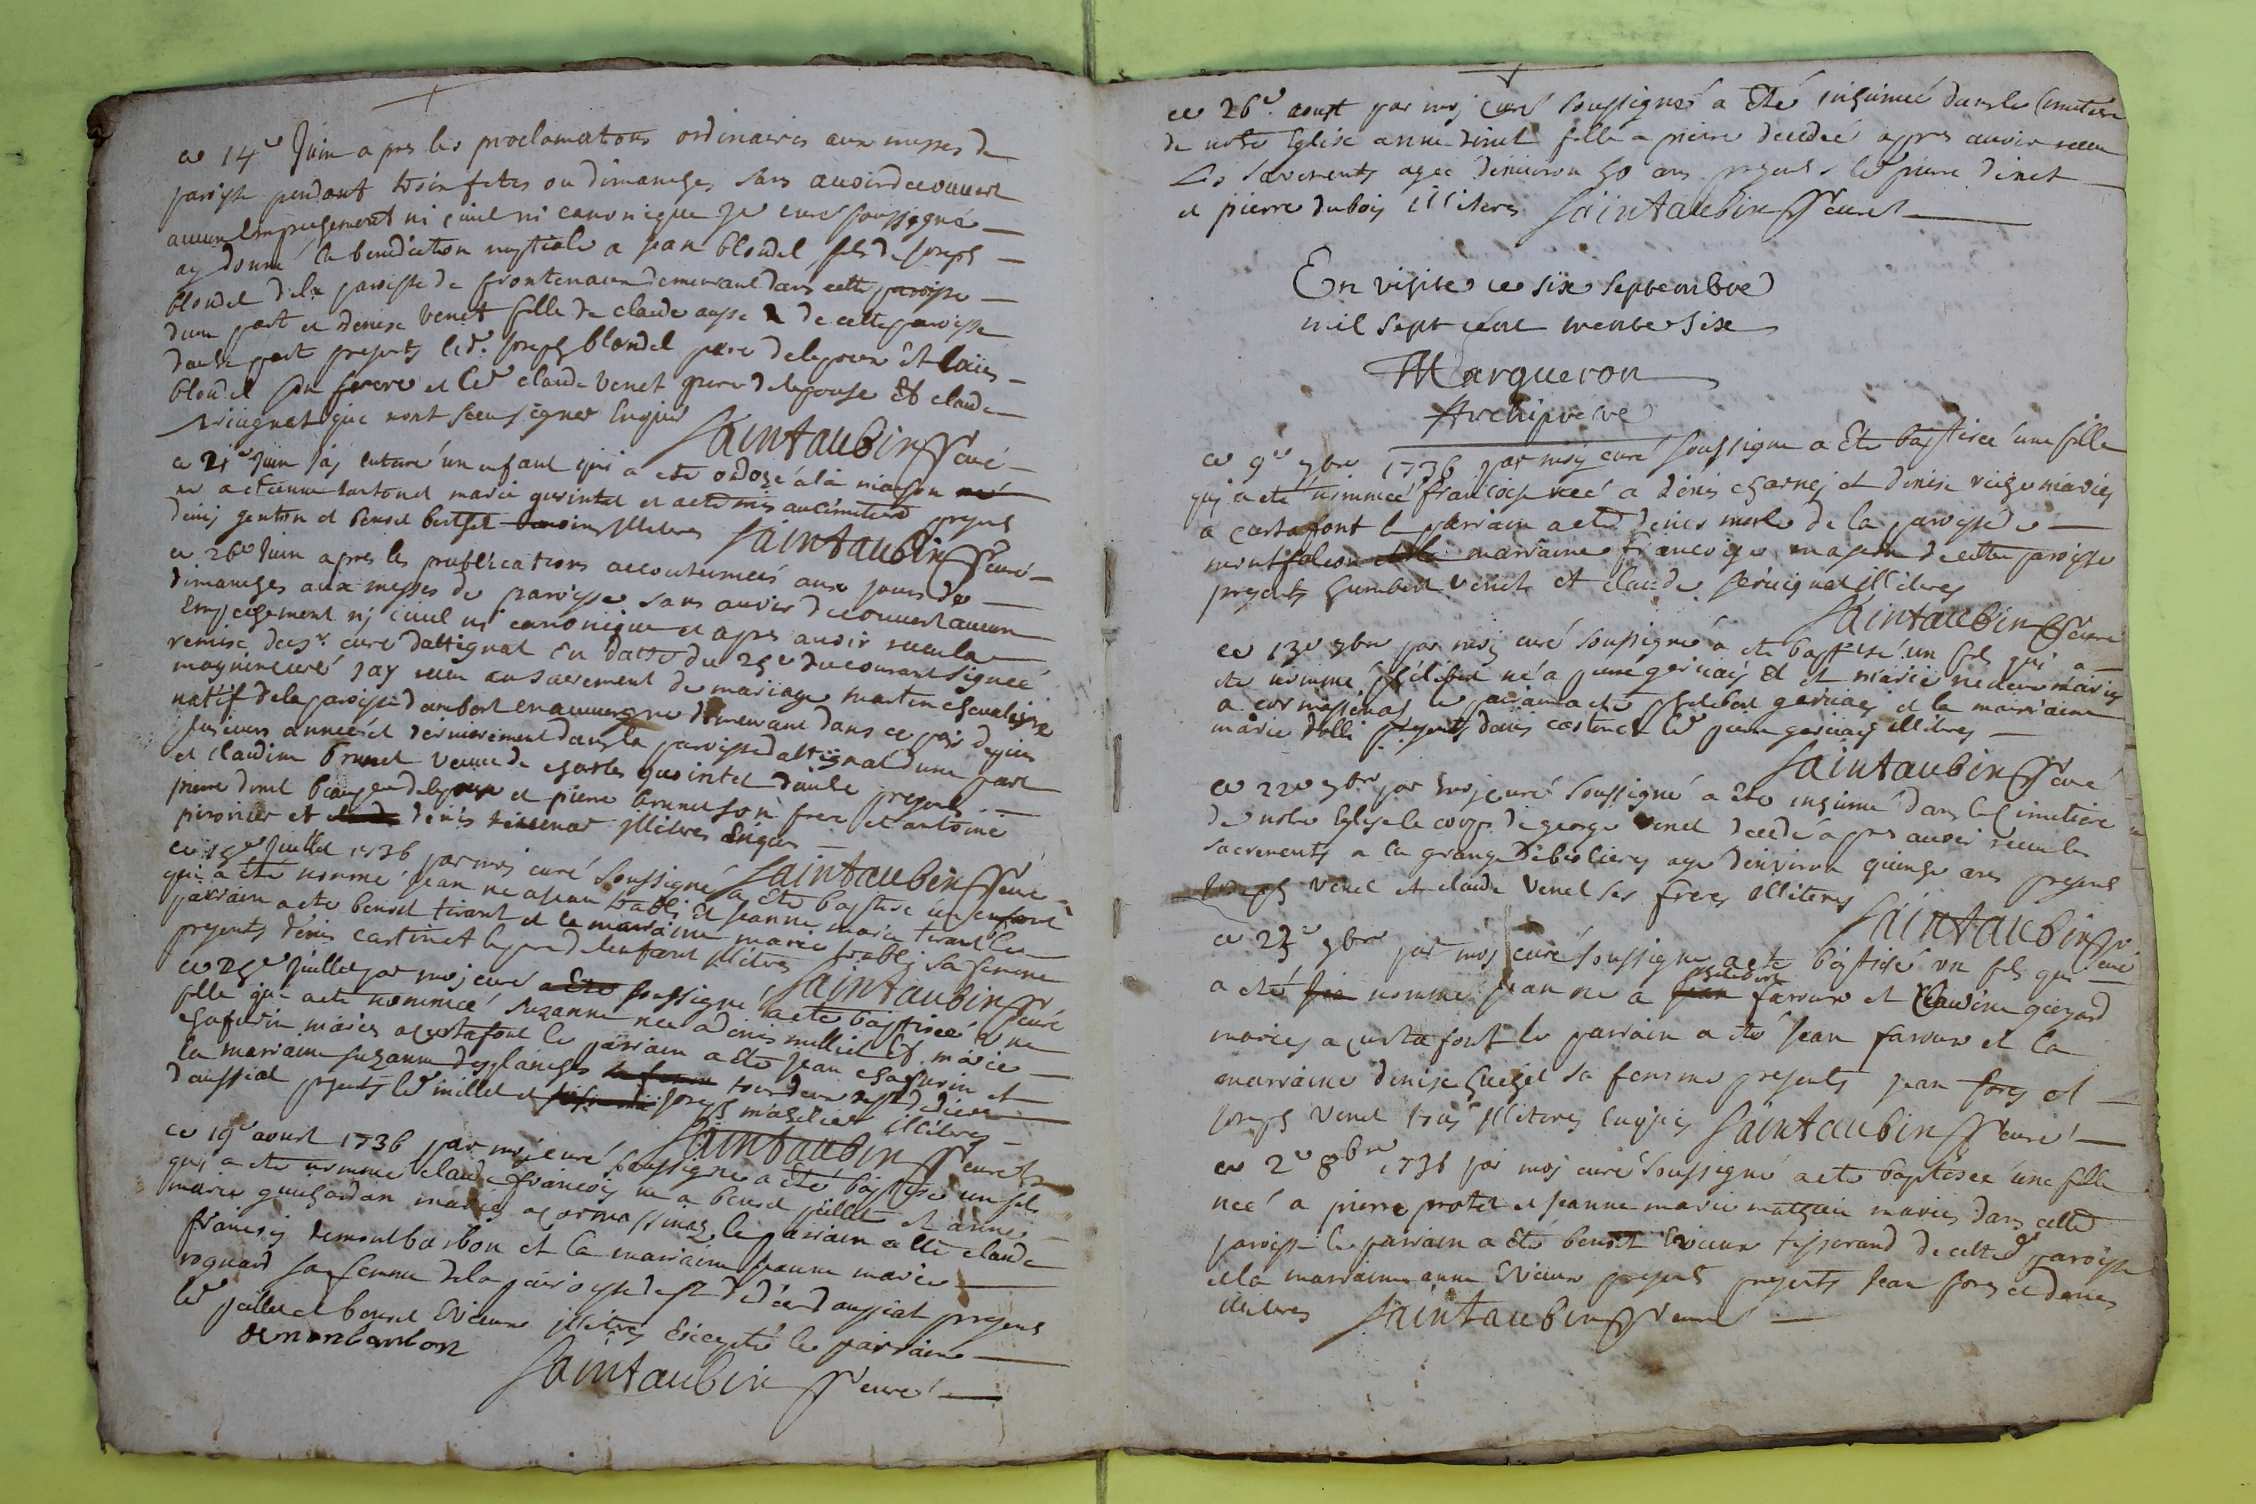 ce 14e Juin apres les proclamations ordinaires aux messes de
paroisse pendant trois fetes ou dimanches sans avoir decouvert
aucun empechement ni civil ni canonique Je curé soussigné
ay donné la benediction nuptiale a jean blondel fils de joseph
blondel de la paroisse de frontenaud demeurant dans cette paroisse
dune part et denise venet fille de claude aussi de cette paroisse
dautre part presents led. joseph blondel pere de lepoux et
blondel son frere et led claude venet pere de lepouse et claude
qui nont sceu signer Enquis
Saintaubin curé
ce 21e Juin jay enterré un enfant qui a été ondoyé a la maison né
a etienne marie quintel et a eté mis au cimetiere presens
denis genton et benoit illitres Saintaubin curé
ce 26e Juin apres les publications accoutumées aux jours de
dimanches aux messes de paroisse sans avoir decouvert aucun
Empechement ny civil ni canonique et apres avoir receu la
remise de curé dattignat En datte du 25e du courant signée
curé jay receu au sacrement de mariage martin chevaligne
natif de la paroisse dambert en auvergne demeurant dans ce pais depuis
plusieurs années et dernierement dans la paroisse dattignat dune part
et claudine brunet veuve de charles quointel dautre presens
pierre de lepoux et pierre brunet son frere et antoine
et denis illitres Enquis
Saintaubin curé
ce 15e Juillet 1736 par moi curé soussigné a été baptisé un enfant
qui a été nommé jean né a jean et jeanne marie tirand le
parrain a ete benoit tirand et la marraine marie sa femme
presents denis castinet le pere de lenfant illitres Saintaubin curé
ce 25e Juillet par moi curé soussigné a ete baptisée une
fille qui a ete nommée suzanne née a denis milliet et marie
chafurin mariés a curtafont le parrain a été jean chafurin et
la marraine suzanne desplanches de st didier
daussiat presents led millet et joseph illitres
Saintaubin curé
ce 19e aoust 1736 par moi curé soussigné a été baptisé un fils
qui a ete nommé claude francois né a benoit pillet et anne
marie guichardan mariés a cormassinaz le parrain a été claude
francois demontbarbon et la marraine jeanne marie
roguard sa femme de la paroisse de st didier daussiat presens
led pillet et benoit illitres Excepté le parrain
demonbarbon
Saintaubin curé
ce 26e aoust par moi curé soussigné a été inhumée dans le cimetiere
de notre Eglise anne dinet fille a pierre decedée apres avoir receu
les sacrements agée denviron 50 ans presents led pierre dinet
et pierre dubois illiteres Saintaubin curé
En visite ce six septembre
mil sept cent trente six
Marqueron
Archiprêtre
ce 9e 7bre 1736 par moy curé soussigné a été baptisée une fille
qui a eté nommée francoise née a denis charnej et denise mariés
a curtafont le parrain a eté denis merle de la paroisse de
montfalcon marraine francoise de cette paroisse
presents humbert venet et claude illitres
Saintaubin curé
ce 13e 7bre par moi curé soussigné a ete baptisé un fils qui a
ete nommé philibert né a pierre gervais et marie mariés
a cormassinas le parrain a eté philibert gervais et la marraine
marie presents denis castinet led pierre gervais illitres
Saintaubin curé
ce 22e 7bre par moj curé soussigné a ete inhumé dans le cimetiere
de notre Eglise le corps de george venet decedé apres avoir receu les
sacrements a la grange agé denviron quinze ans presens
joseph venet et claude venet ses freres illiteres
Saintaubin curé
ce 23e 7bre par moj curé soussigné a ete baptisé un fils qui
philibert
a eté nommé jean né a faroux et Claudine
mariés a curtafont le parrain a ete jean faroux et la
marraine denise sa femme presents jean forey et
joseph venet tous illiteres Enquis Saintaubin curé
ce 2e 8bre 1736 par moj curé soussigné a ete baptisée une fille
née a pierre protet et jeanne marie mariés dans cette
paroisse le parrain a été benoit tisserand de cette paroisse
et la marraine anne presents jean forey et
illitres Saintaubin curé